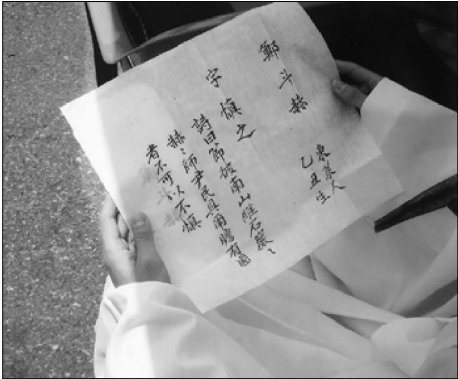 鄭斗赫
東萊人
乙丑生
字 慎之
詩曰節彼南山維石巖〻
赫〻師尹民具爾瞻有國
者不可以不慎